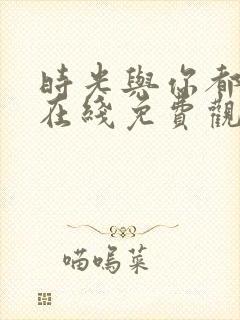 時光與你都
在綫免費觀
喵嗚菜